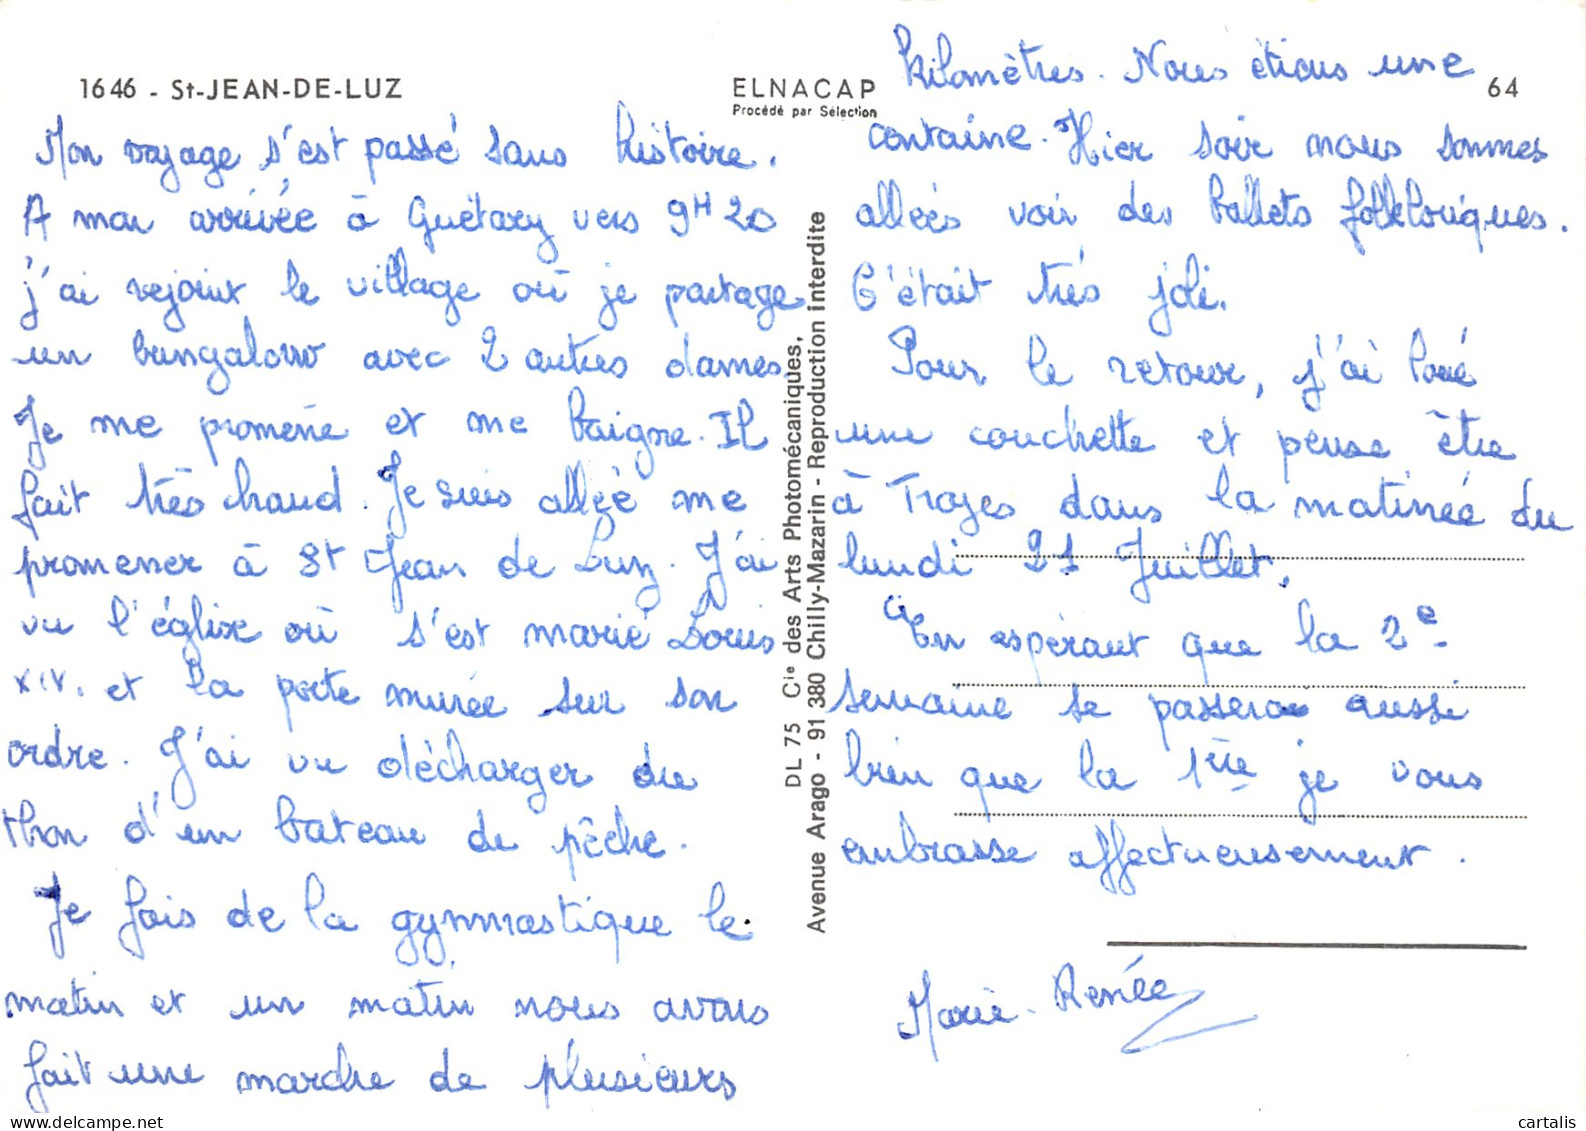 1646 - St-JEAN-DE-LUZ
ELNACAP
Procédé par Sélection
64
Mon voyage s'est passé sans histoire.
A mon arrivée à Guétary vers 9H20
j'ai rejoint le village où je partage
un bungalow avec 2 autres dames.
Je me promène et me baigne. Il
fait très chaud. Je suis allée me
promener à St Jean de Luz. J'ai
vu l'église où s'est marié Louis
XIV. et la porte murée sur son
ordre. J'ai vu décharger du
thon d'un bateau de pêche.
Je fais de la gymnastique le
matin et un matin nous avons
fait une marche de plusieurs
DL 75 Cie des Arts Photomécaniques,
Avenue Arago - 91 380 Chilly-Mazarin - Reproduction interdite
kilomètres. Nous étions une
centaine. Hier soir nous sommes
allées voir des ballets folkloriques.
C'était très joli.
Pour le retour, j'ai loué
une couchette et pense être
à Troyes dans la matinée du
lundi 21 Juillet.
En espérant que la 2e
semaine se passera aussi
bien que la 1ère je vous
embrasse affectueusement.
Marie-Renée
cartalis
delcampe.net